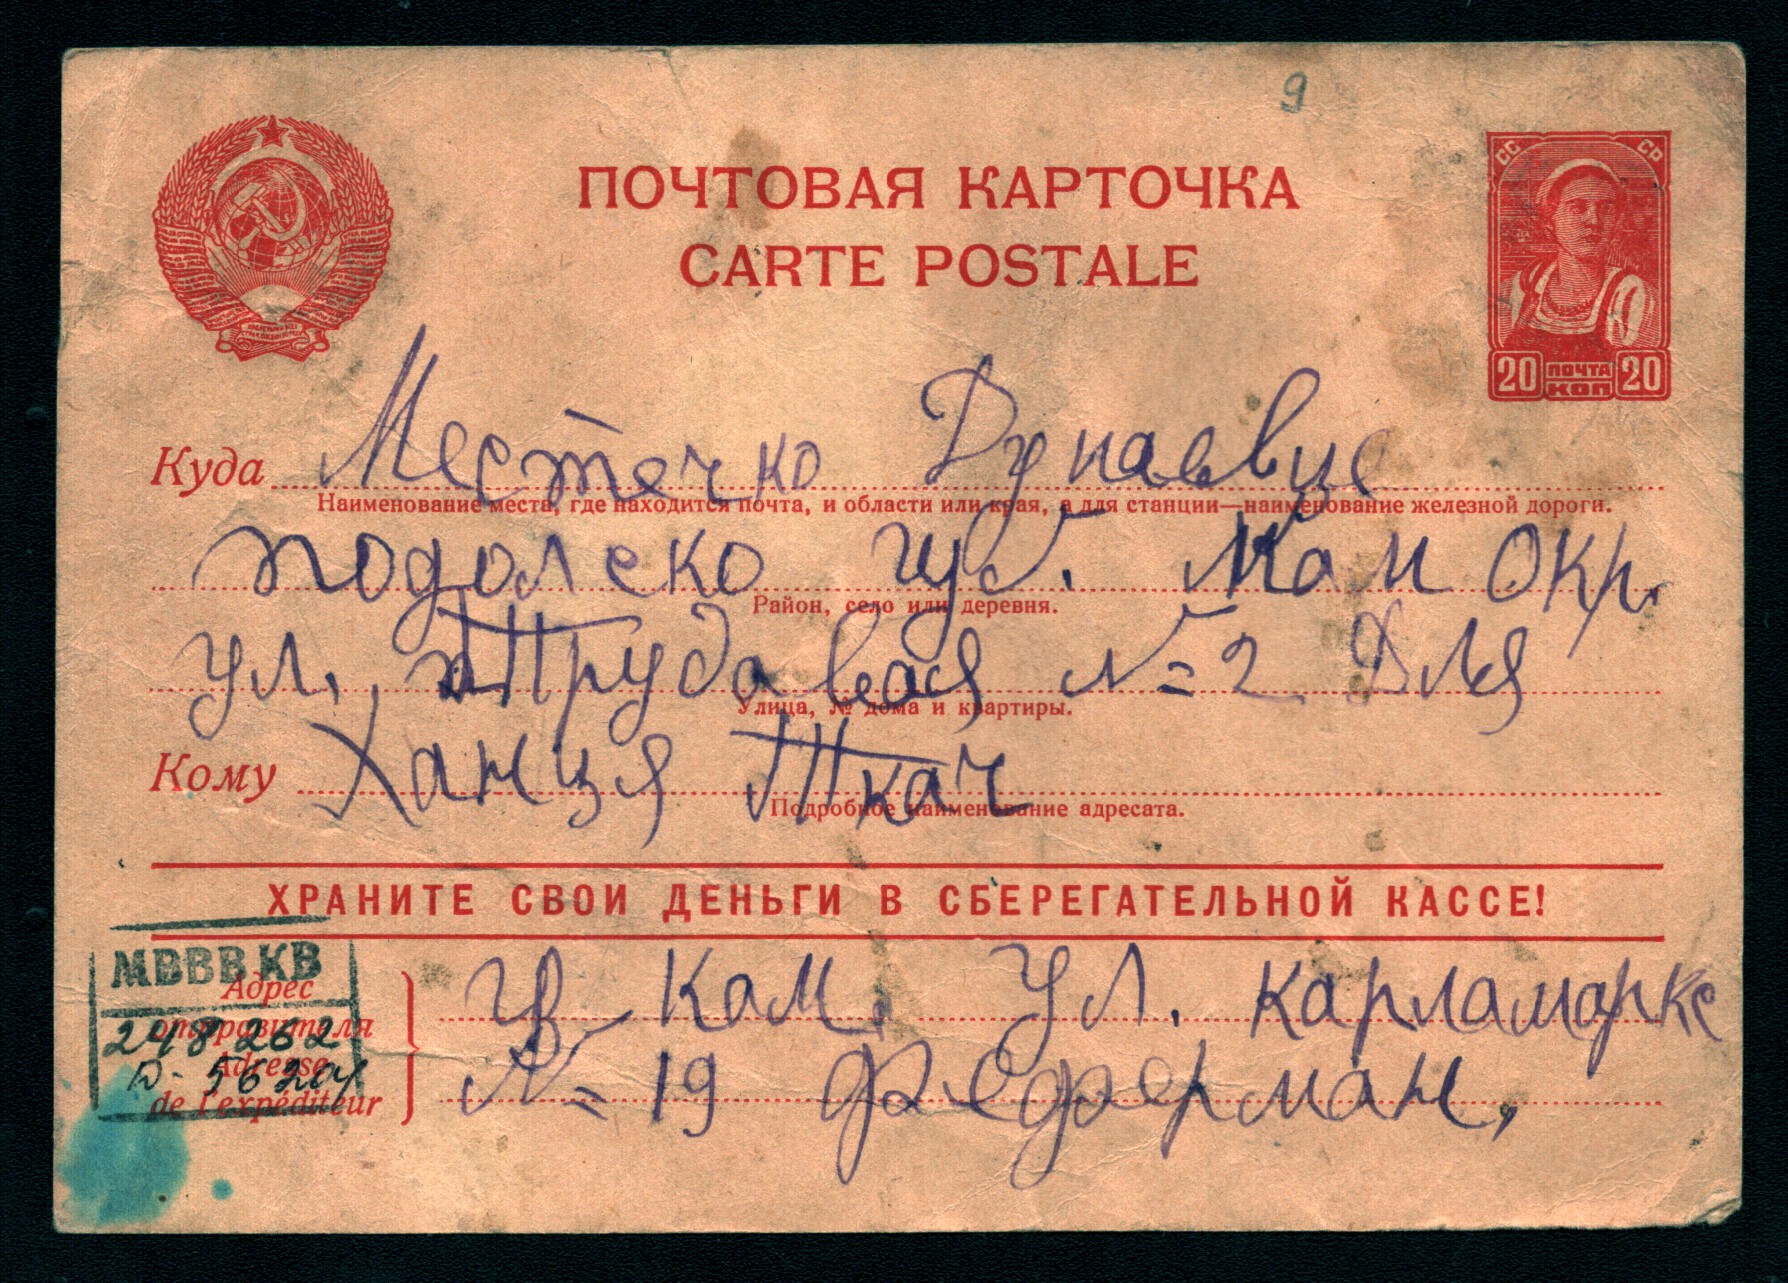 9
СС СР
ПОЧТОВАЯ КАРТОЧКА
CARTE POSTALE
20 ПОЧТА КОП 20
Куда Местечко Дунаевце
Наименование места, где находится почта, и области или края, а для станции—наименование железной дороги.
подолско губ. Кам окр.
Район, село или деревня.
ул. Трудовая №2 Для
Улица, № дома и квартиры.
Кому Ханця Ткач
Подробное наименование адресата.
ХРАНИТЕ СВОИ ДЕНЬГИ В СБЕРЕГАТЕЛЬНОЙ КАССЕ!
МВВВКВ
Адрес отправителя
Adresse de l'expéditeur
248262
Кам. ул. Карламаркс
№19 Федферман,